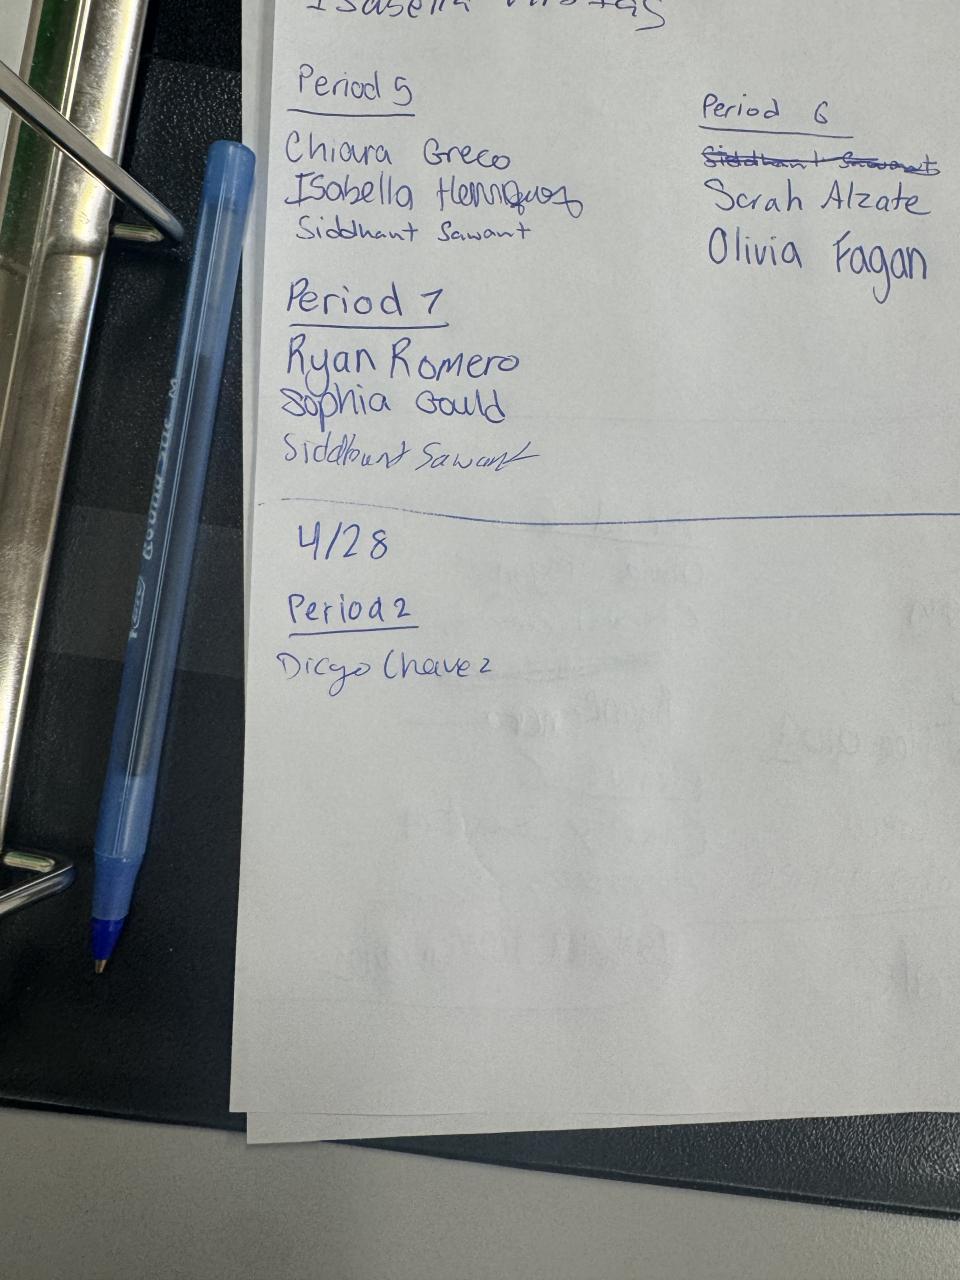 Isabella
Period 5
Chiara Greco
Isabella Henriquez
Siddhant Sawant
Period 6
Siddhant Sawant
Sarah Alzate
Olivia Fagan
Period 7
Ryan Romero
Sophia Gould
Siddhant Sawant
4/28
Period 2
Diego Chavez
Round Stic M